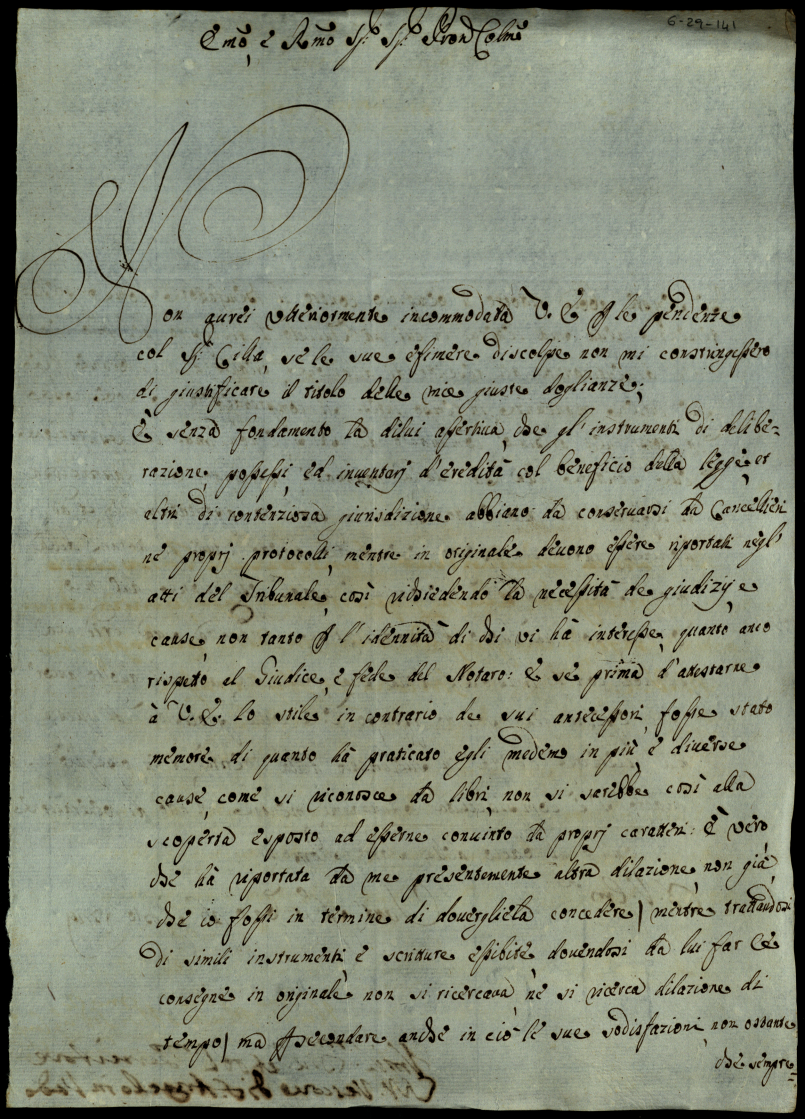 6-29-141
Emo, e Rmo Sig. Sig. Pron Colmo
Non aurei ulteriormente incommodata V. E. p le pendenze
col Sig. Cilla, se le sue efimere discolpe non mi constringessero
di giustificare il titolo delle mie giuste doglianze;
È senza fondamento la dilui assertiua, che gl'instrumenti di delibe=
razione, possessi, ed inuentarj d'eredità col beneficio della legge, et
altri di contenziosa giurisdizione abbiano da conseruarsi da Cancellieri
ne proprj protocolli, mentre in originale deuono essere riportati negl'
atti del Tribunale, così richiedendo la necessità de giudizij e
cause, non tanto p l'idennità di chi vi hà interesse, quanto anco
rispetto al Giudice, e fede del Notaro: e se prima d'attestarne
à V. E. lo stile in contrario de sui antecessori, fosse stato
memore di quanto hà praticato egli medemo in più, e diuerse
cause, come si riconosce da libri, non si sarebbe così alla
scoperta esposto ad esserne conuinto da proprj caratteri: È vero
che hà riportata da me presentemente altra dilazione, non già,
che io fossi in termine di douergliela concedere / mentre trattandosi
di simili instrumenti e scritture essibite douendosi da lui far le
consegne in originale, non si ricercaua, nè si ricerca dilazione di
tempo / ma p secondare anche in ciò le sue sodisfazioni, non ostante
che sempre=